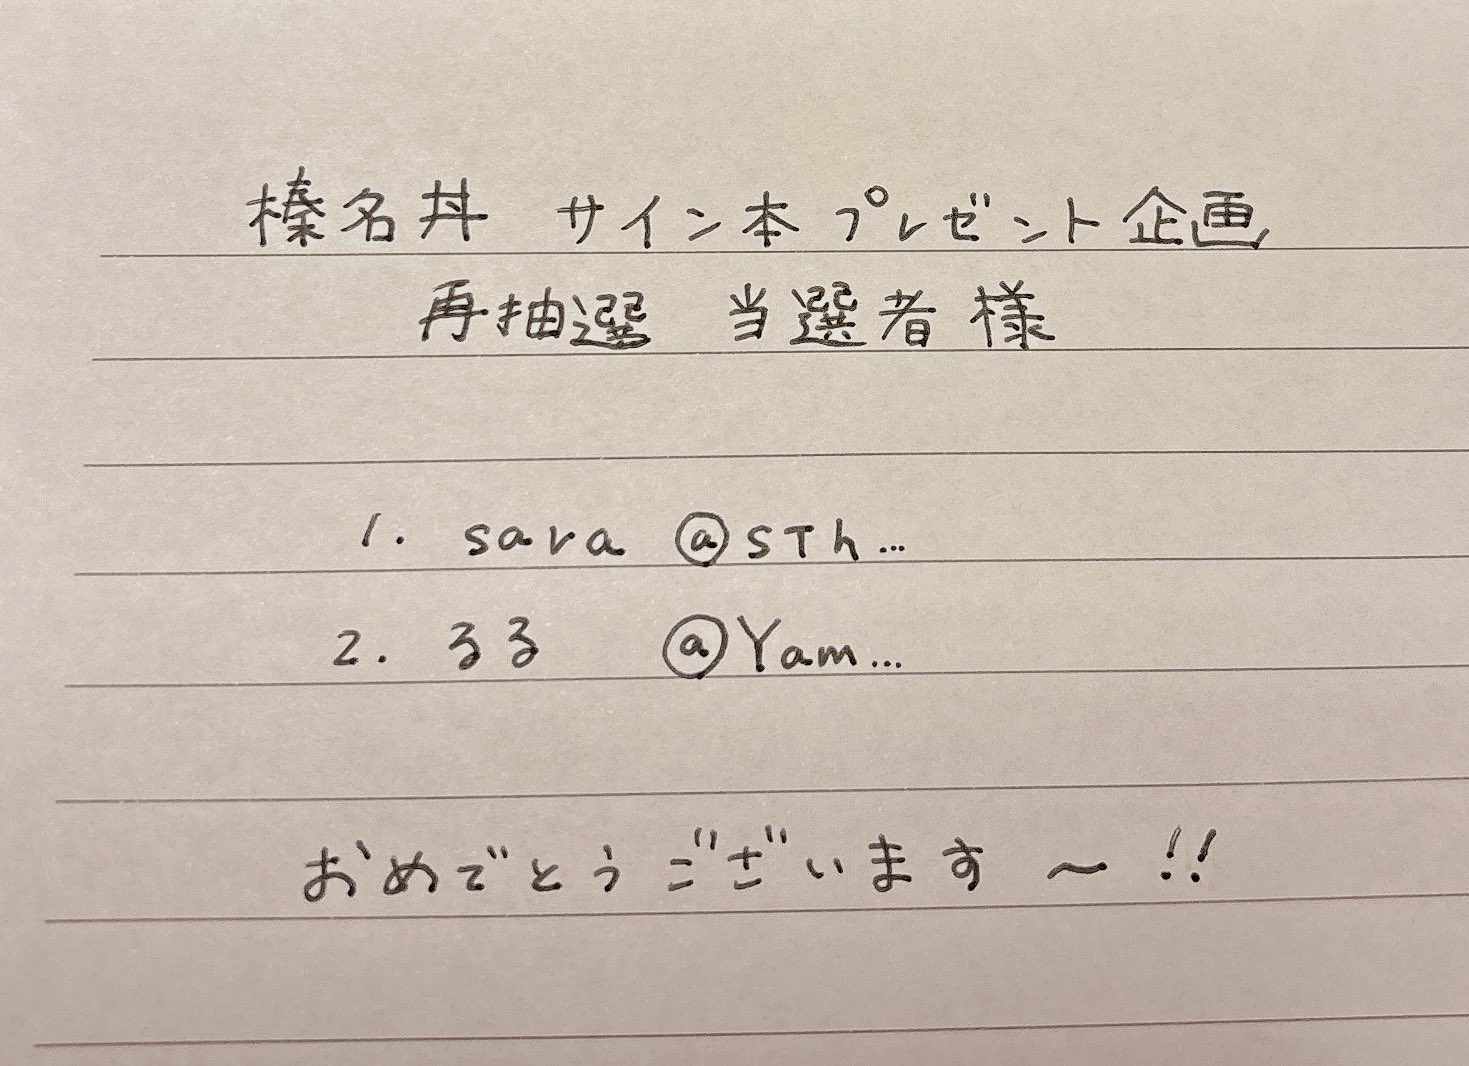 榛名丼 サイン本プレゼント企画
再抽選 当選者様
1. sara @sTh...
2. るる @Yam...
おめでとうございます〜!!